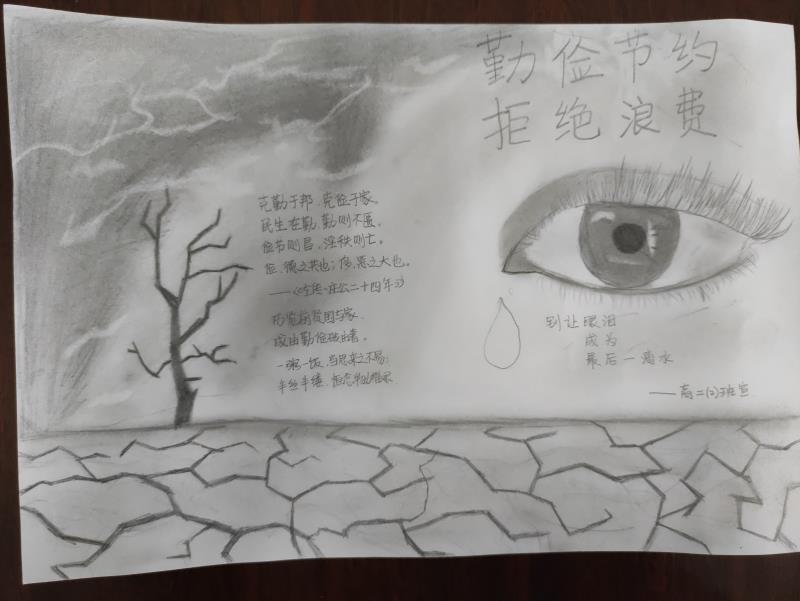 勤俭节约
拒绝浪费
克勤于邦,克俭于家。
民生在勤,勤则不匮。
俭节则昌,淫佚则亡。
俭,德之共也;侈,恶之大也。
——《左传·庄公二十四年》
历览前贤国与家,
成由勤俭破由奢。
一粥一饭,当思来之不易;
半丝半缕,恒念物力维艰
别让眼泪
成为
最后一滴水
——高二(2)班宣